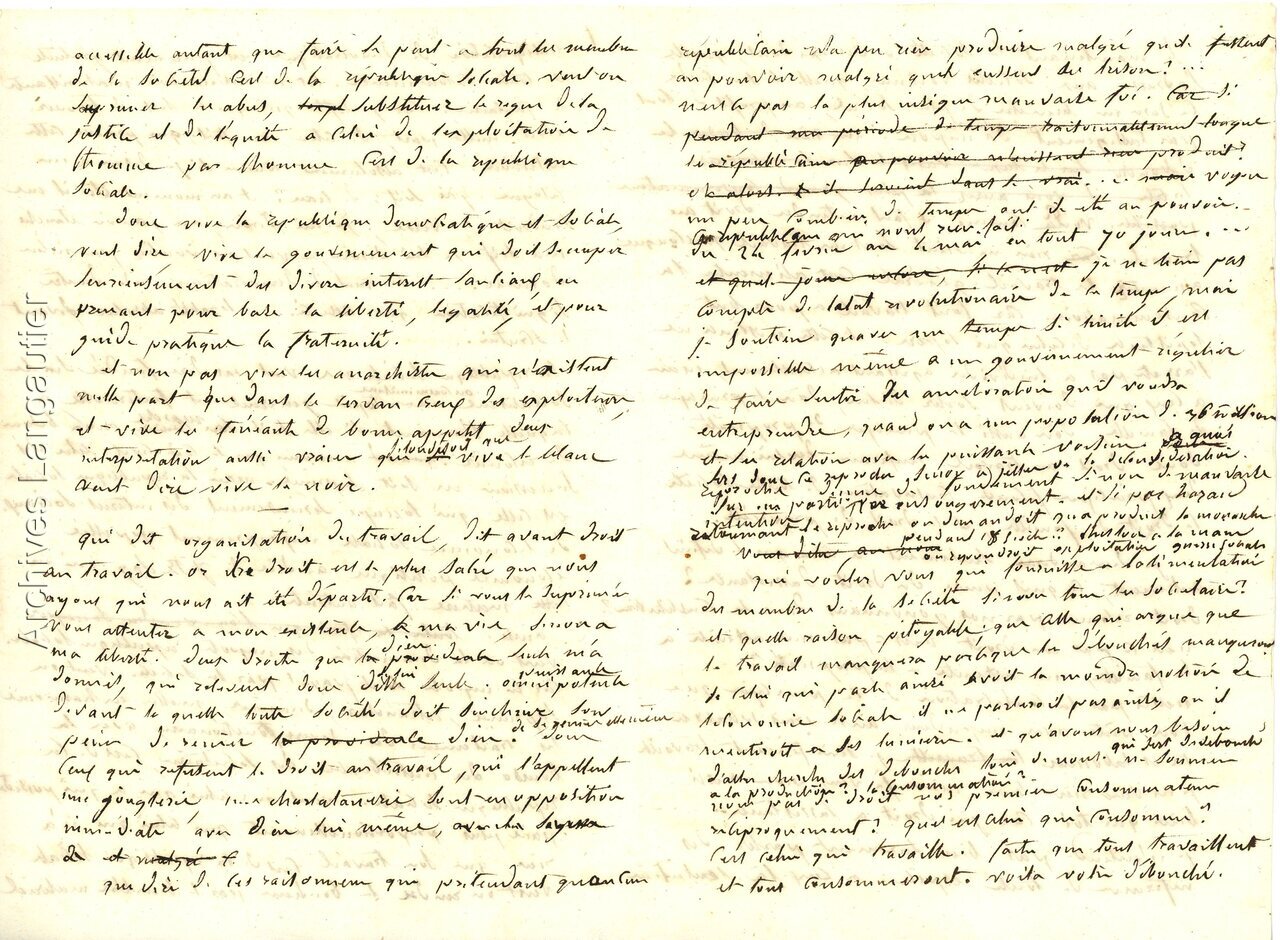 accessible autant que faire se peut a tout les membre
de la societé c'est de la république sociale. veut on
suprimer les abus, substituer le regne de la
justice et de l'équité a celui de l'exploitation de
lhomme par lhomme c'est de la republique
sociale.
Donc vive la republique democratique et sociale,
veut dire vive le gouvernement qui doit soccuper
serieusement des divers interest sociaux en
prenant pour base la liberté, legalité, et pour
guide pratique la fraternité.
et non pas vive les anarchiste qui n'existent
nulle part que dans le cervau creux des exploiteurs,
et vive les fénéant & bons appetit deux
interpretation aussi vraies que vive le blanc
veut dire vive le noir.
qui dit organisation du travail, dit avant droit
au travail. or ce droit est le plus sacré que nous
ayons qui nous ait été départi. Car si vous le suprimé
vous attentez a mon existence, a ma vie, sinon a
ma liberté. deux droits que dieu seul m'a
donnés, qui relevent donc d'elle seule. puissante
devant la quelle toute société doit sincliner sous
peine de renier la providence dieu. donc
ceux qui refusent le droit au travail, qui l'appellent
une jonglerie, une charlatanerie sont en opposition
immédiate avec dieu lui même,
et malgré
que dire de ces raisonneurs qui prétendent qu'aucun
républicain n'a peu rien produire malgré qu'ils fussent
au pouvoir malgré quels eussent des raison? ...
nest ce pas la plus insigne mauvaise foi. Car si
pendant une période de temps raisonnablement longue
les républicain au pouvoir n'eussent rien produit?
oh alors ils seroient dans le vrai... mais voyons
un peu combien de temps ont ils été au pouvoir.
Ces republicain qui n'ont rien fait.
du 24 fevrier au 4 mai en tout 70 jours. ...
et quels jours je ne tiens pas
compte de l'état révolutionaire de ce temps, mais
je soutien qu'avec un temps si limité il est
impossible même a un gouvernement régulier
de faire les amélioration qu'il voudra
entreprendre, quand on a une population de 36 million
et des relation avec les puissants voisins. a quoi
sert donc ce reproche sinon a jetter de la déconsidération
sur un parti
intention et si par hazard
retournant le reproche on demandoit qu'a produit la monarchie
pendant 18 siècle
on repondroit exploitation
qui voulez vous qui fournisse a l'alimentation
des membre de la société sinon tous les sociétaire?
et quelle raison pitoyable, que celle qui argue que
le travail manquera parceque les débouchés manquerai
si celui qui parle ainsi avoit la moindre notion de
léconomie sociale il ne parleroit pas ainsi, ou il
mentiroit a ses lumières. et qu'avons nous besoin
d'aller chercher des débouchés loin de nous. ne sommes
nous pas de droit nos premier consommateurs
réciproquement? quel est celui qui consomme?
c'est celui qui travaille. faite que tout travaillent
et tout consommeront. voila votre débouché.
Archives Langautier